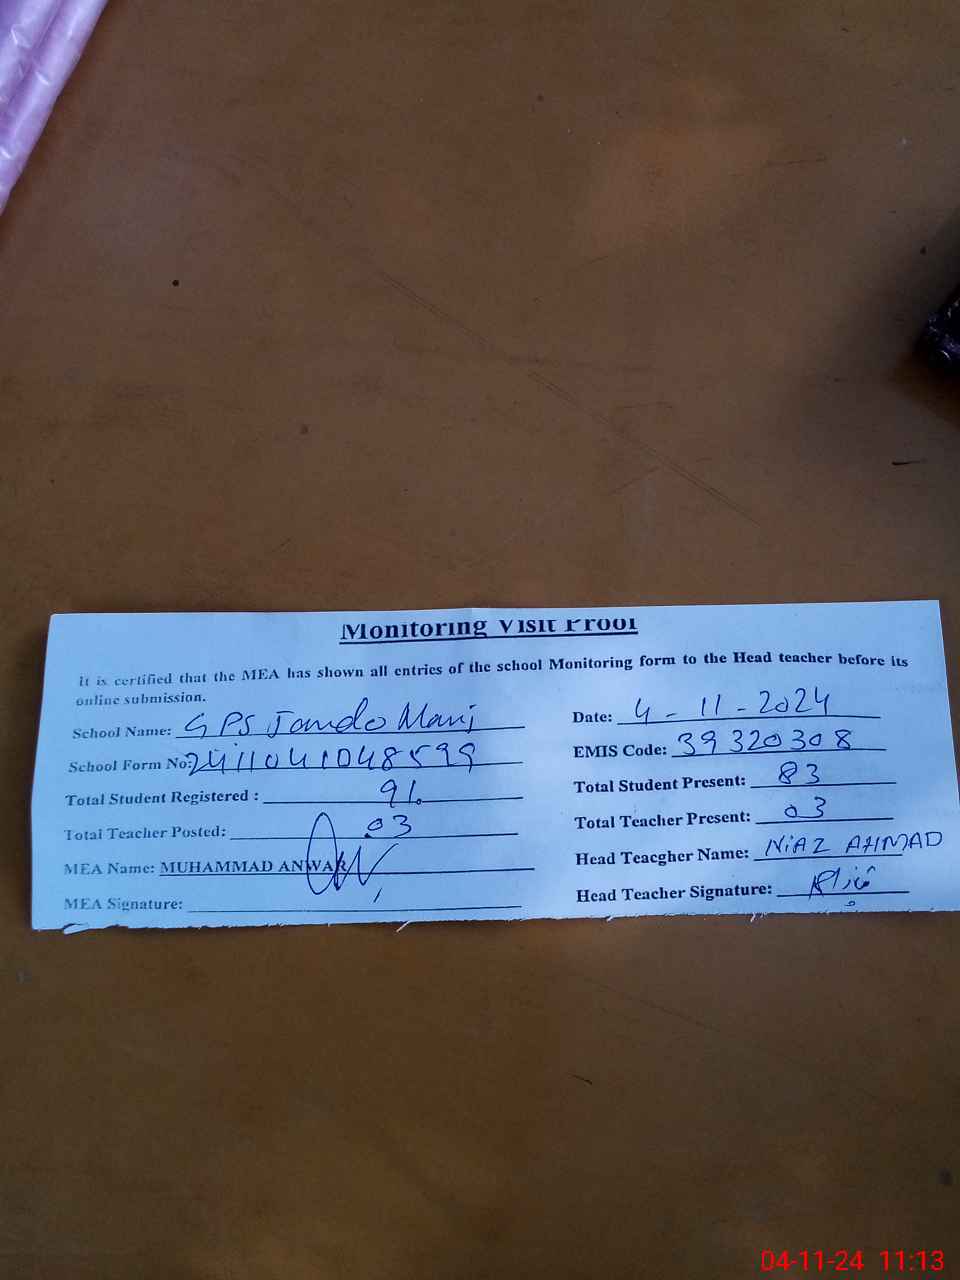 Monitoring Visit Proof
It is certified that the MEA has shown all entries of the school Monitoring form to the Head teacher before its
online submission.
School Name: GPS Jando Mari
Date: 4-11-2024
School Form No: 2411041048599
EMIS Code: 39320308
Total Student Registered : 91
Total Student Present: 83
Total Teacher Posted: 03
Total Teacher Present: 03
MEA Name: MUHAMMAD ANWAR
Head Teacgher Name: NiAZ AHMAD
MEA Signature:
Head Teacher Signature:
04-11-24 11:13